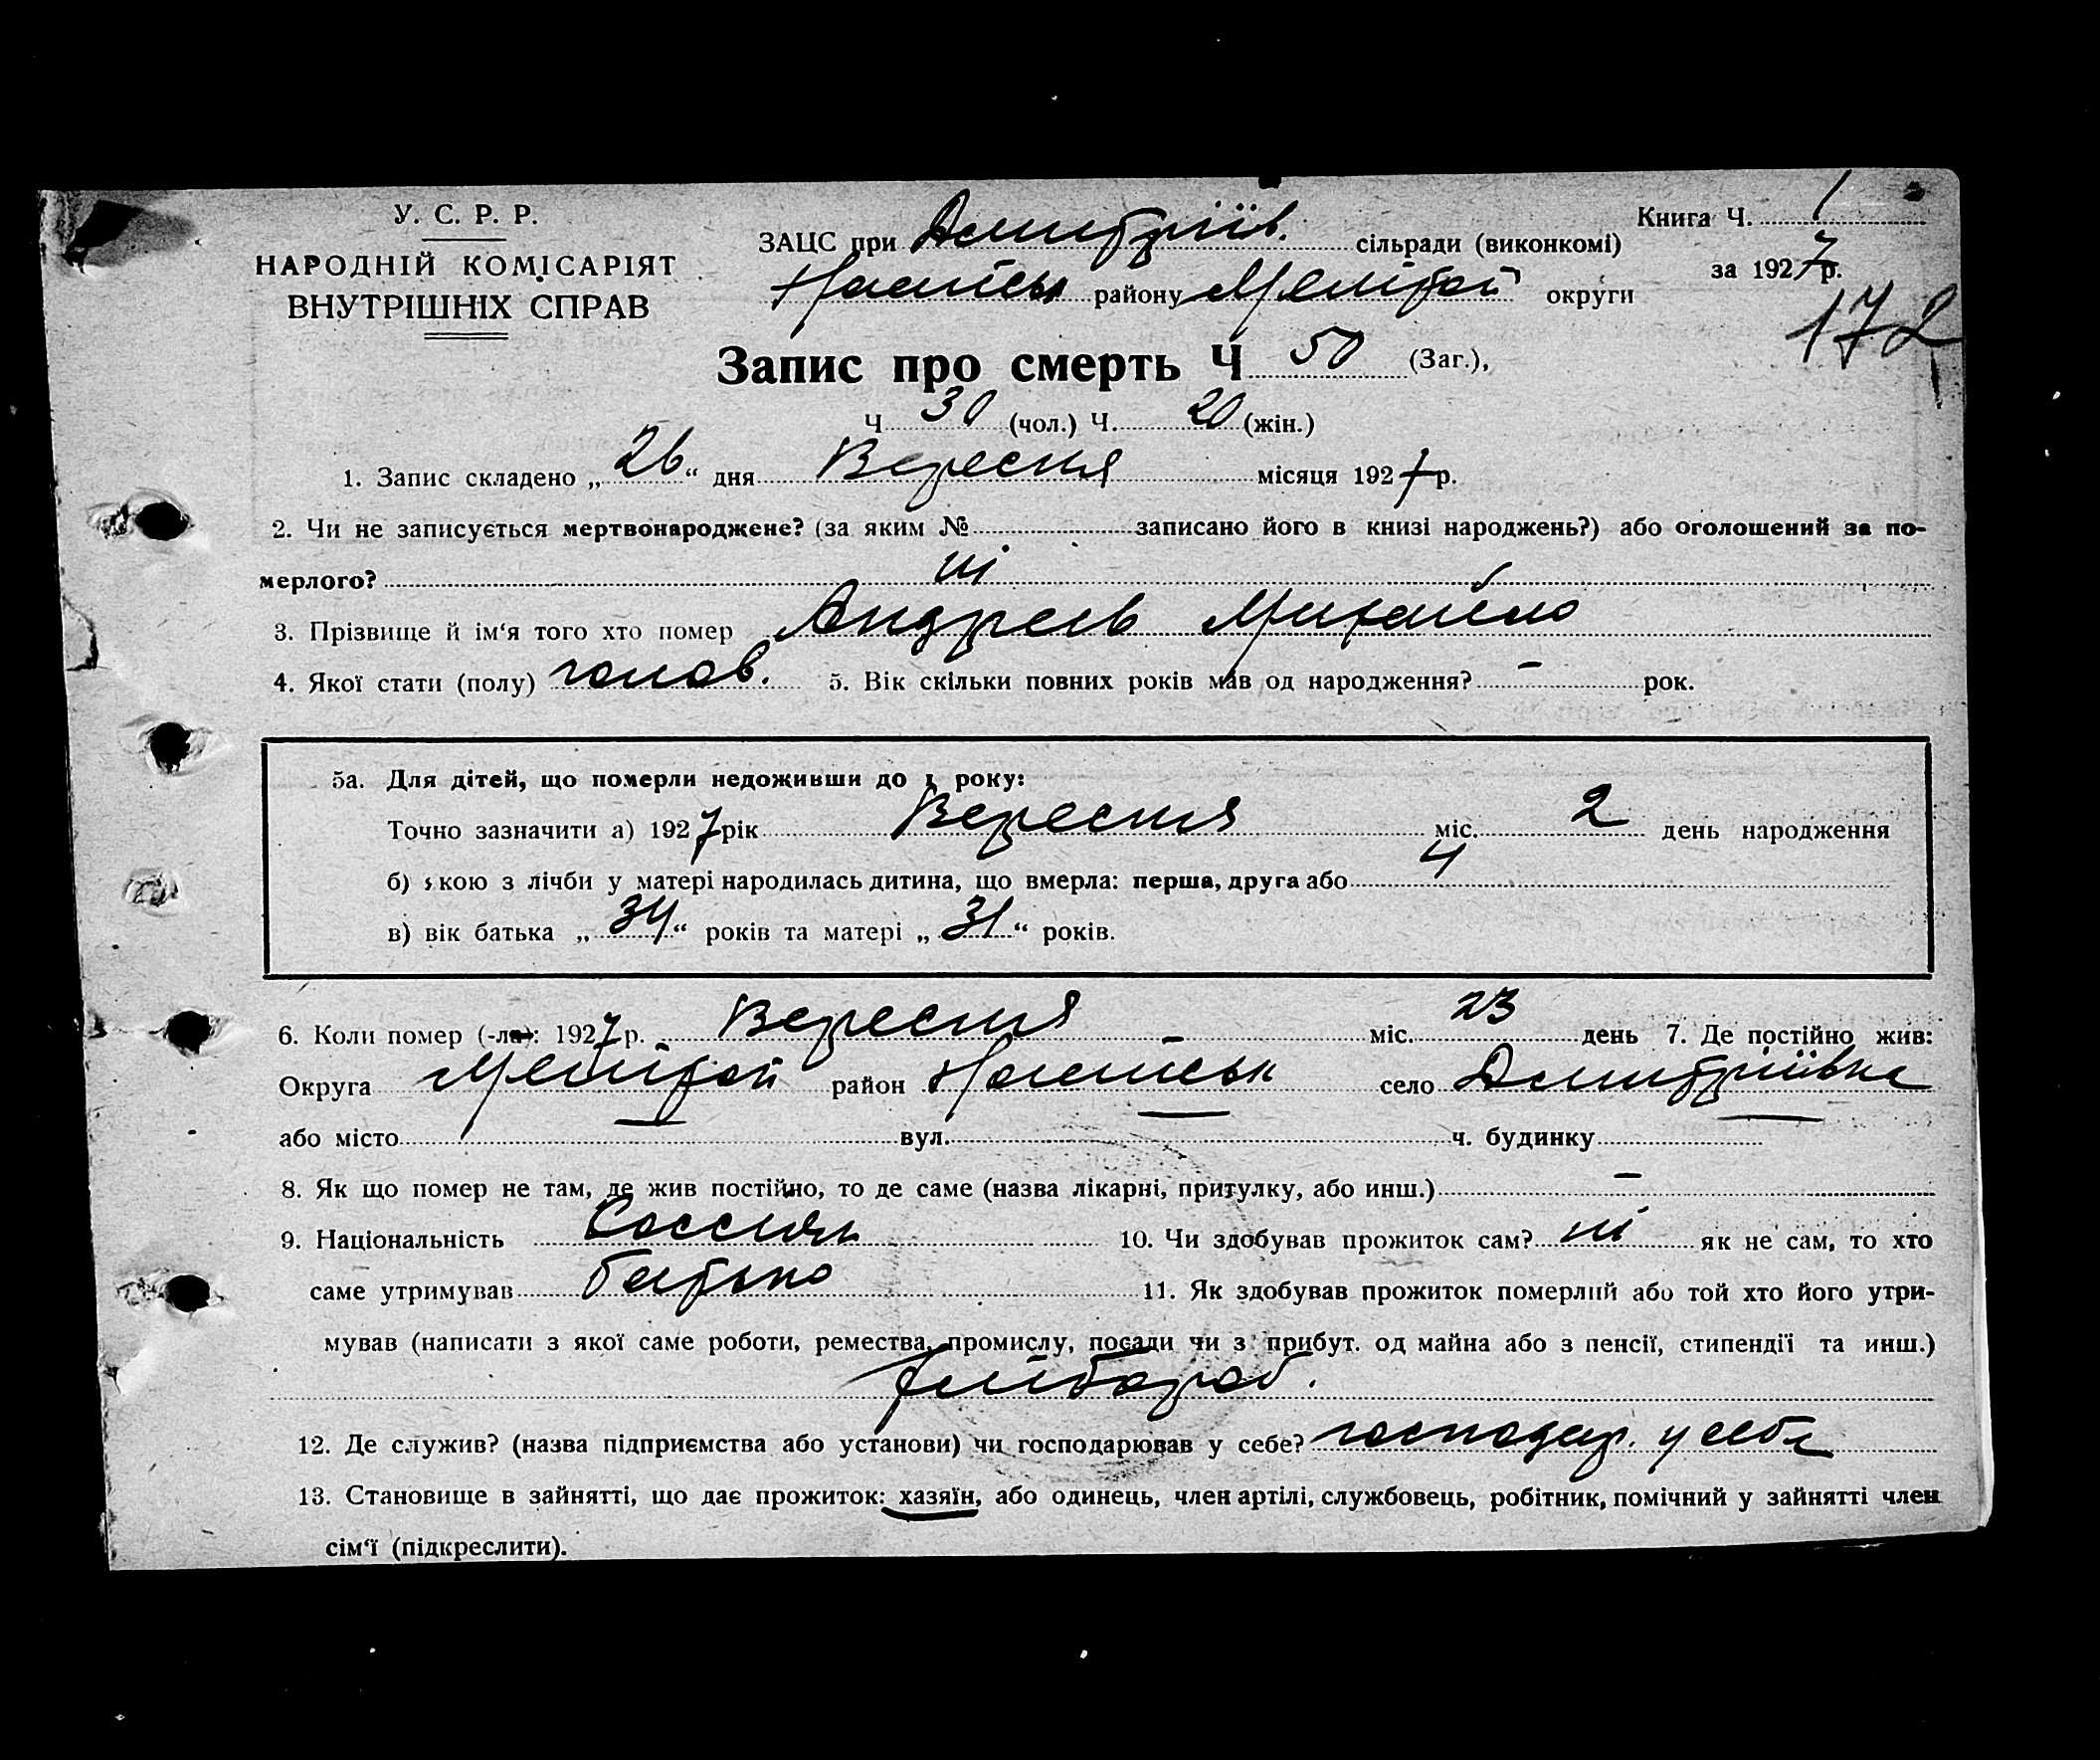 У. С. Р. Р.
НАРОДНІЙ КОМІСАРІЯТ
ВНУТРІШНІХ СПРАВ
ЗАЦС при Дмитріїв. сільради (виконкомі)
району Меліто́п округи
Книга Ч. 1
за 1927 р.
172
Запис про смерть Ч 50 (Заг.),
Ч 30 (чол.) Ч. 20 (жін.)
1. Запис складено „26“ дня Вересня місяця 1927 р.
2. Чи не записується мертвонароджене? (за яким № записано його в книзі народжень?) або оголошений за по-
мерлого? ні
3. Прізвище й ім‘я того хто помер Андреєв Михайло
4. Якої стати (полу) чолов. 5. Вік скільки повних років мав од народження? – рок.
5а. Для дітей, що померли недоживши до 1 року:
Точно зазначити а) 1927 рік Вересня міс. 2 день народження
б) якою з лічби у матері народилась дитина, що вмерла: перша, друга або 4
в) вік батька „34“ років та матері „31“ років.
6. Коли помер (-ла): 1927 р. Вересня міс. 23 день 7. Де постійно жив:
Округа район село Дмитріївка
або місто вул. ч. будинку
8. Як що помер не там, де жив постійно, то де саме (назва лікарні, притулку, або инш.) –
9. Національність 10. Чи здобував прожиток сам? ні як не сам, то хто
саме утримував батько 11. Як здобував прожиток померлий або той хто його утри-
мував (написати з якої саме роботи, ремества, промислу, посади чи з прибут. од майна або з пенсії, стипендії та инш.)
хлібороб.
12. Де служив? (назва підприємства або установи) чи господарював у себе? господар. у себе
13. Становище в зайнятті, що дає прожиток: хазяїн, або одинець, член артілі, службовець, робітник, помічний у зайнятті член
сім‘ї (підкреслити).